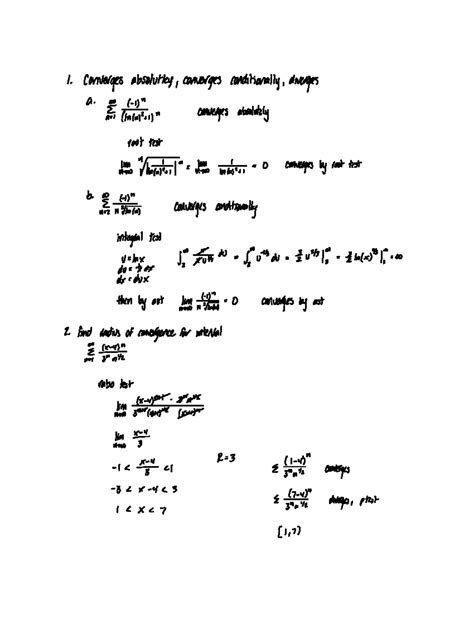 1. Converges absolutley, converges conditionally, diverges
a. ∞ Σ n=1 (-1)^n / (ln(n)^2+1)^n converges absolutely
root test
lim n→∞ ^n√|1/(ln(n)^2+1)|^n = lim n→∞ 1/(ln(n)^2+1) = 0 converges by root test
b. ∞ Σ n=2 (-1)^n / (n ^3√ln(n)) converges conditionally
integral test
u = lnx
du = 1/x dx
dx = dux
∫_2^∞ x/(x u^1/3) du = ∫_2^∞ u^-1/3 du = 3/2 u^2/3 |_2^∞ = 3/2 ln(x)^2/3 |_2^∞ = ∞
then by ast lim n→∞ = 0 converges by ast
2. find radius of convergence for interval
∞ Σ n=1 (x-4)^n / (3^n n^1/2)
ratio test
lim n→∞
lim n→∞ (x-4)/3
-1 < (x-4)/3 < 1 R=3 Σ (1-4)^n / (3^n n^1/2) converges
-3 < x-4 < 3 Σ (7-4)^n / (3^n n^1/2) diverges,
1 < x < 7
[1,7)